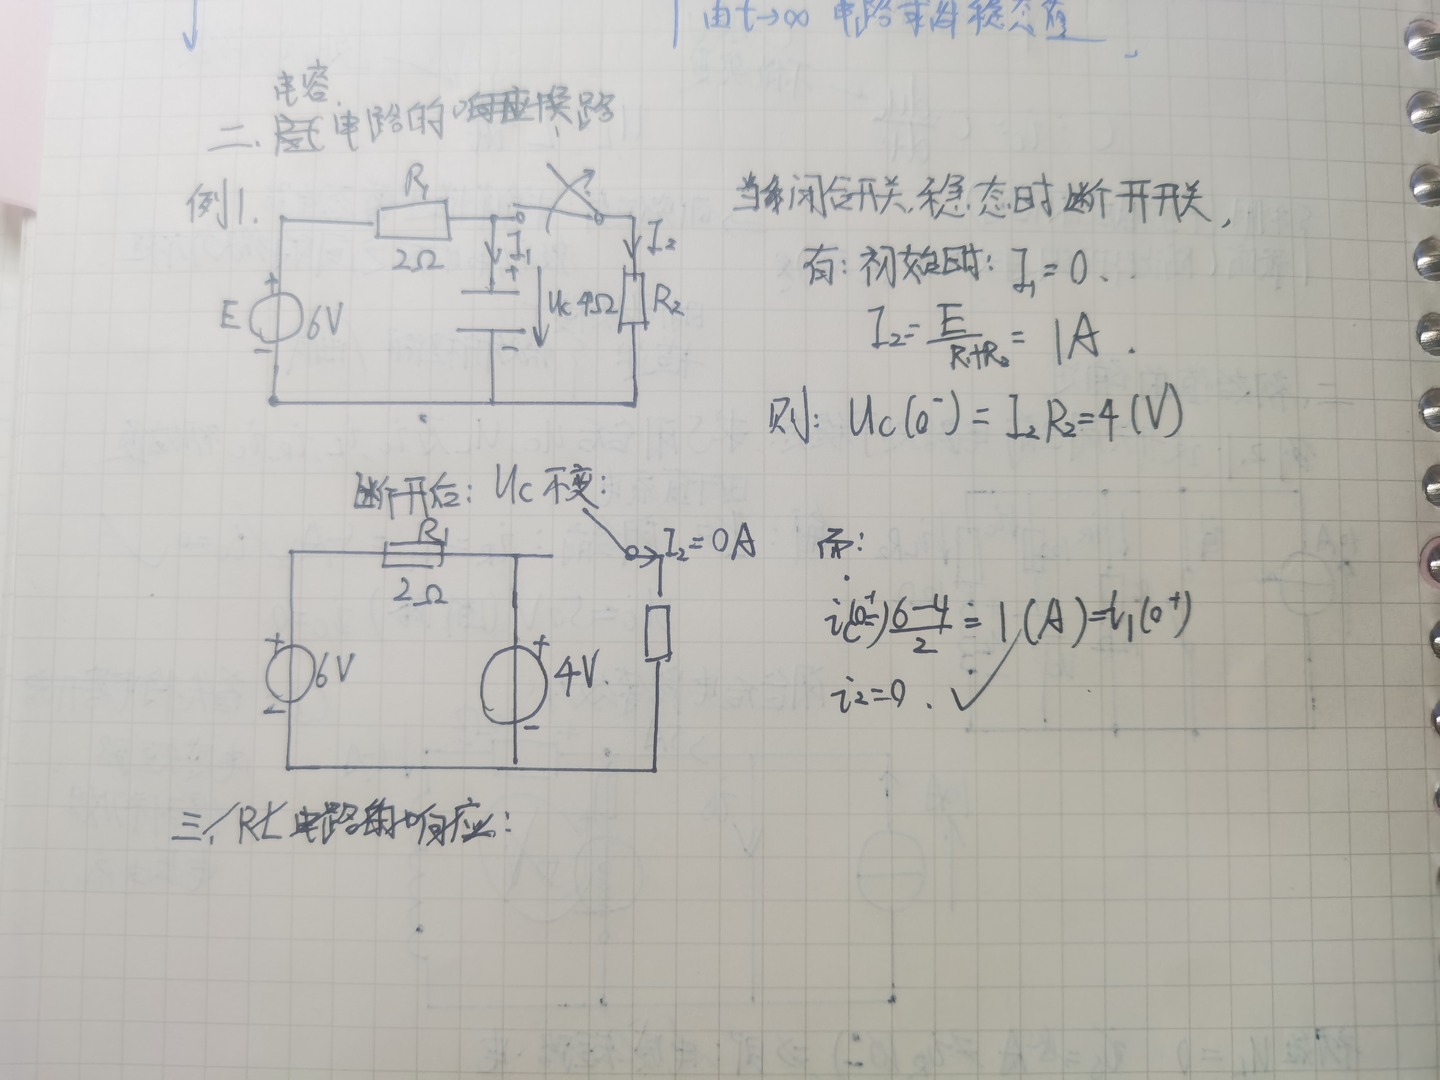 由t→∞ 电路求得稳态值
电容
二. 电路的响应换路
例1.
R₁
2Ω
I₁
I₂
+
E
6V
-
+
Uc
-
4Ω
R₂
当闭合开关,稳态时断开开关,
有: 初始时: I₁=0.
I₂=E/(R₁+R₂)=1A.
则: Uc(0⁻)=I₂R₂=4(V)
断开后: Uc不变:
R₁
2Ω
I₂=0A
+
6V
-
+
4V.
-
而:
ic(0⁺)=(6-4)/2=1(A)=i₁(0⁺)
i₂=0.
三、电路的响应: